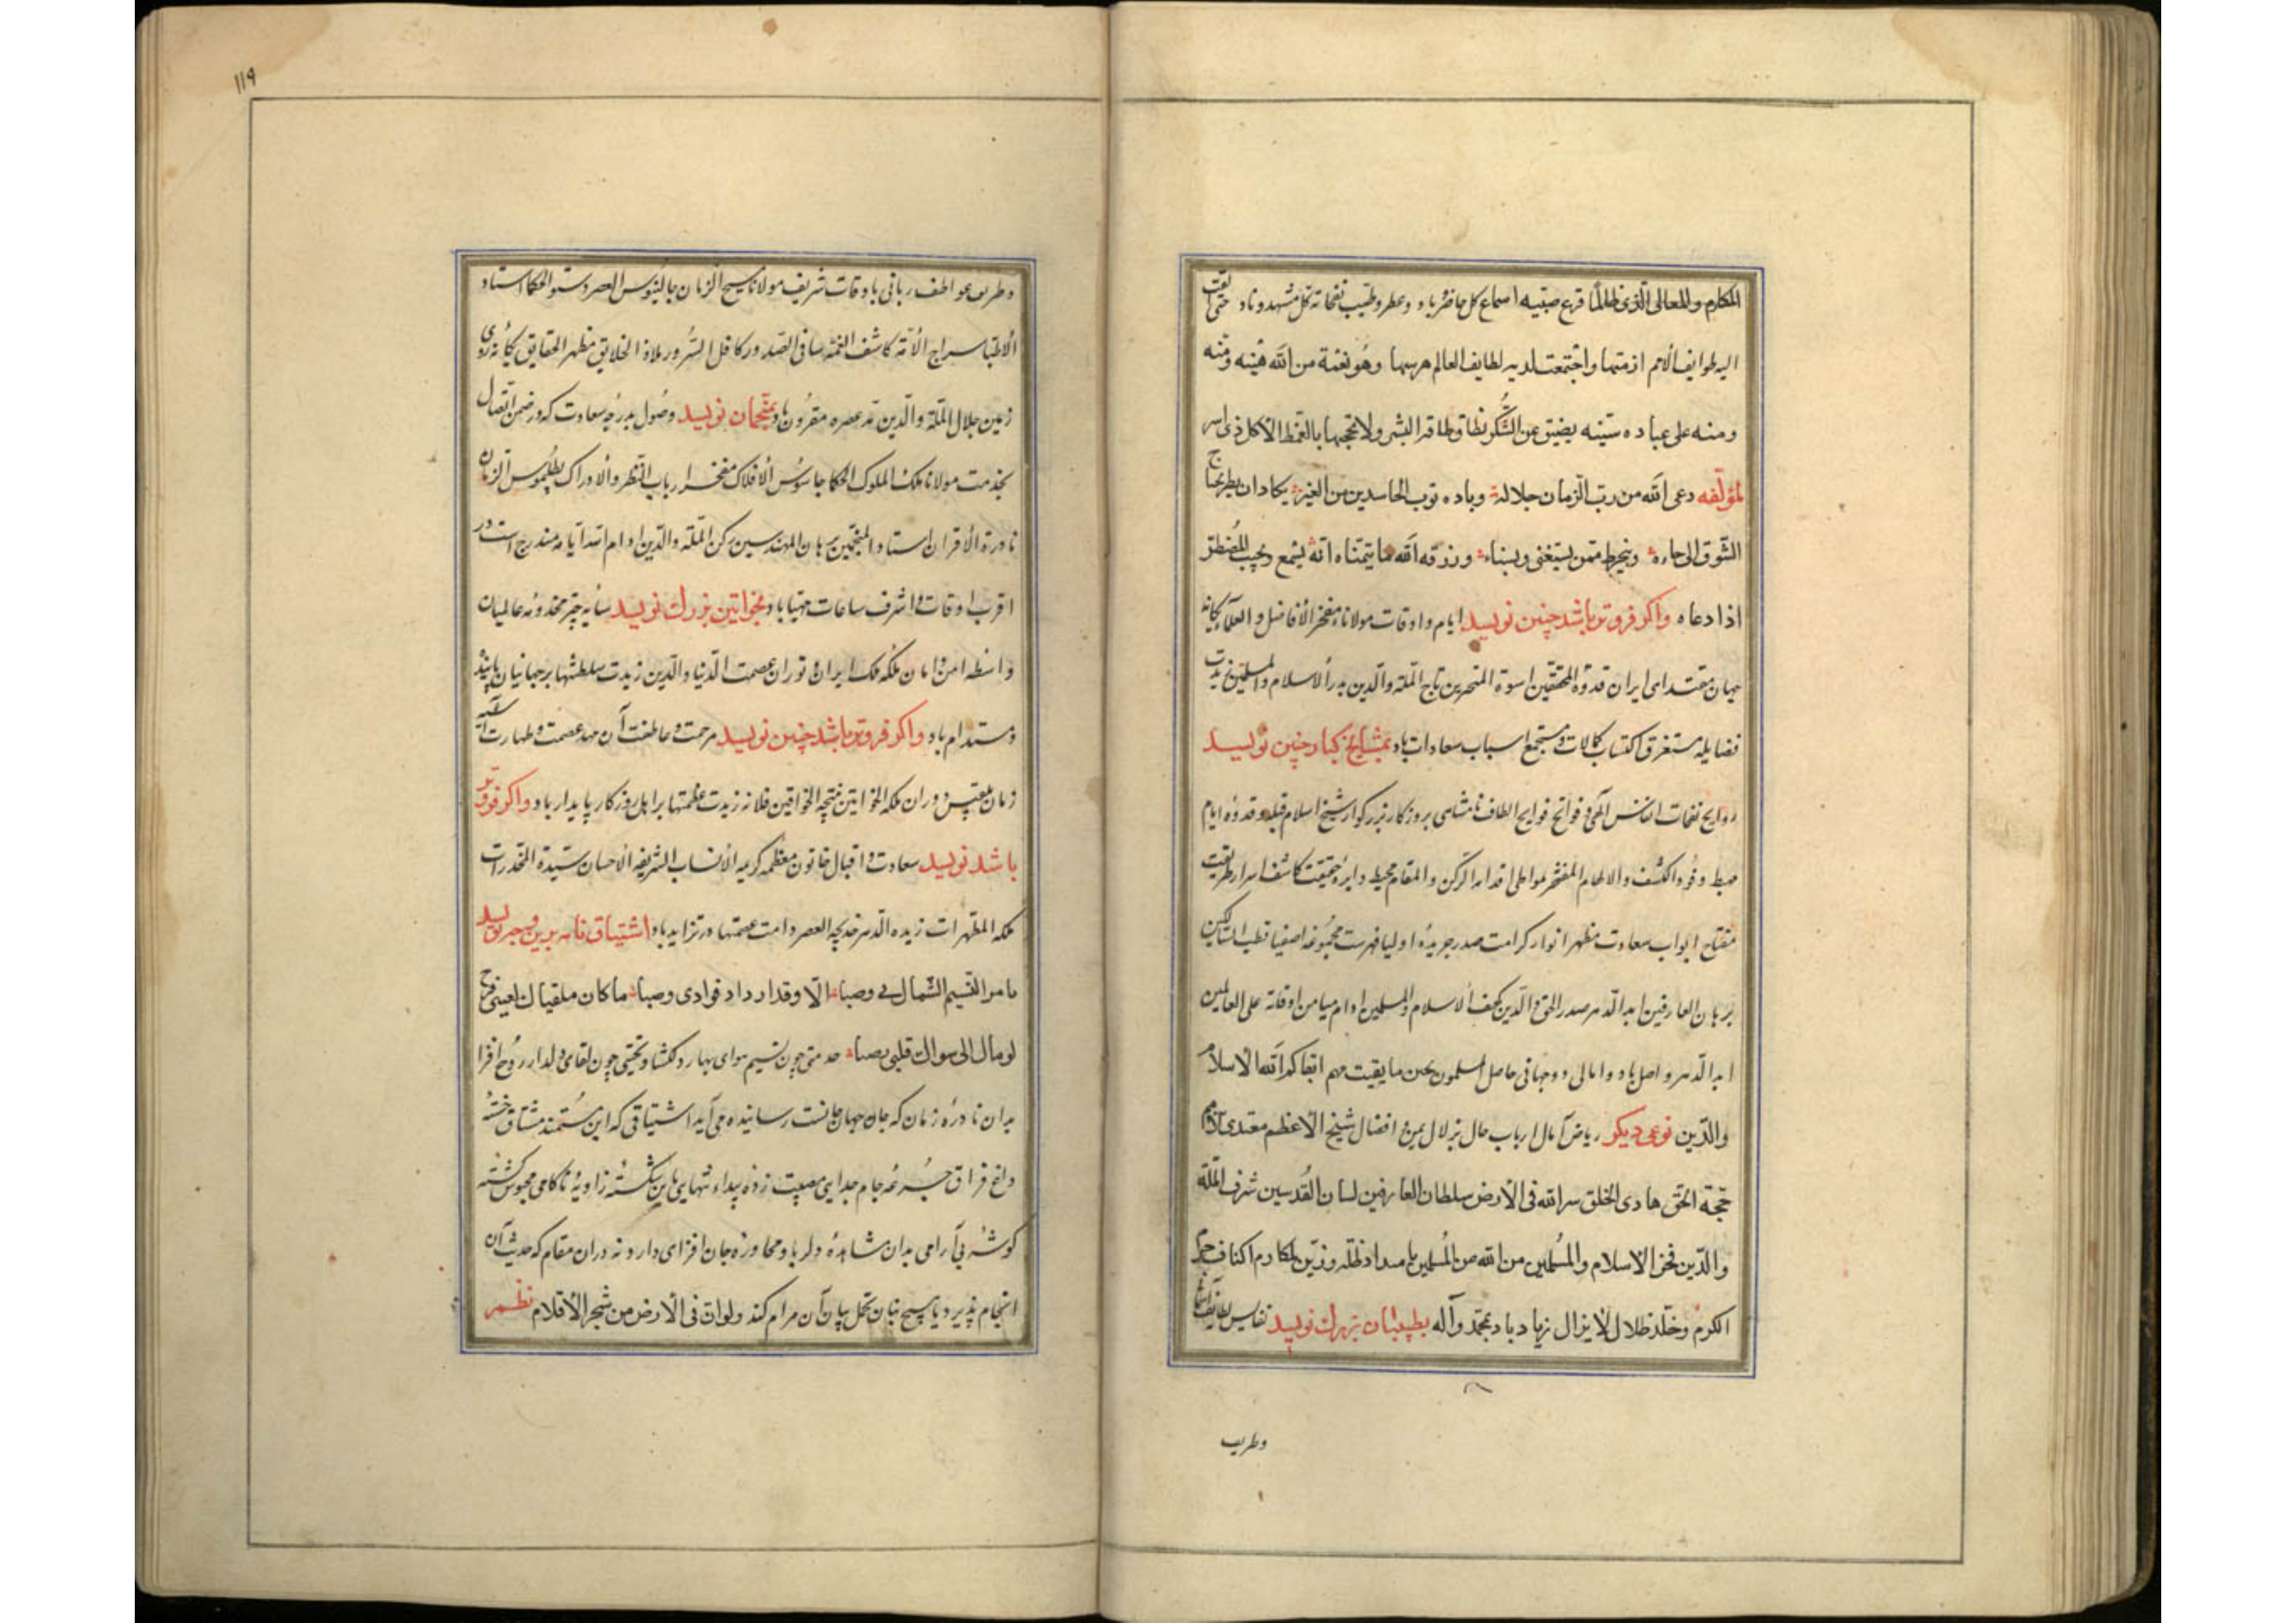 المکارم والمعالی الذی طالما قرع صیته اسماع کل حاضر و باد و عطر و طیب نفحاته کل مشهد و ناد حتی
الیه طوایف الامم ازمتها واجتمعت لدیه لطایف العالم وهو نعمة من الله
ومنه علی عباده سنیه یضیق عن الشکر نطاق طاقة البشر ولا
لمؤلفه دعی الله من رب الزمان جلاله وباده ثوب الحاسدین من یکاد ان
الشوق الی ورزقه الله ما یتمناه انه یسمع ویجیب المضطر
اذا دعاه واکر فروتر باشد چنین نویسد ایام و اوقات مولانا مفخر الافاضل و العلما یکانه
جهان مقتدای ایران قدوة المحققین اسوة المتبحرین تاج الملة والدین بدر الاسلام والمسلمین زیدت
فضایله مستغرق اکتساب کمالات و مستجمع اسباب سعادات باد بمشایخ کبار چنین نویسد
روایح نفحات انفاس الهی و فواتح فوایح الطاف نامتناهی بروزکار بزرکوار شیخ اسلام قبله و قدوه ایام
مهبط وفود الکشف والالهام المفتخر بمواطی اقدامه الرکن والمقام محیط دایره حقیقت کاشف اسرار طریقت
مفتاح ابواب سعادت مظهر انوار کرامت صدر جریده اولیا فهرست مجموعه اصفیا قطب السالکین
برهان العارفین ابد الدهر صدر الحق والدین کهف الاسلام والمسلمین ادام میامن اوقاته علی العالمین
ابد الدهر واصل باد و امانی دوجهانی حاصل المسلمون بخیر ما بقیت لهم ابقاکم الله الاسلام
والدین نوعی دیکر ریاض آمال ارباب حال بزلال یمن افضال شیخ الاعظم مقتدی
حجة الحق هادی الخلق سر الله فی الارض سلطان العارفین لسان القدسین شرف الملة
والدین فخر الاسلام والمسلمین من الله من المسلمین بامتداد ظله وزین لمکارم اکناف
الکرم وخلد ظلال لایزال باد بمحمد وآله بطبیبان بزرک نویسد نفایس لطایف
وطریف
۱۱۹
وطریف عواطف ربانی باوقات شریف مولانا مسیح الزمان جالینوس العصر دستور الحکما استاد
الاطبا سراج الامة کاشف الغمه شافی الصدور کافل السرور ملاذ الخلایق مظهر الحقایق یکانه روی
زمین جلال الملة والدین مد عصره مقرون باد بمنجمان نویسد وصول بدرجه سعادت که در ضمن اتصال
بخدمت مولانا ملک الملوک الحکما جاسوس الافلاک مفخر ارباب النظر والادراک بطلمیوس الزمان
نادرة الاقران استاد المنجمین برهان المهندسین رکن الملة والدین ادام الله ایامه مندرج است در
اقرب اوقات و اشرف ساعات مهیا باد بخواتین بزرک نویسد سایه چتر مخدومه عالمیان
واسطه امن و امان ملکه ملک ایران و توران عصمت الدنیا والدین زیدت سلطنتها بر جهانیان پاینده
و مستدام باد واکر فروتر باشد چنین نویسد مرحمت و عاطفت آن مهد عصمت و طهارت آسیه
زمان بلقیس دوران ملکه الخواتین نتیجه الخواقین فلانه زیدت عظمتها بر اهل روزکار پایدار باد واکر فروتر
باشد نویسد سعادت و اقبال خاتون معظمه کریمه الانساب الشریفه الاحسان سیدة المخدرات
ملکه المطهرات زبیده الدهر خدیجه العصر دامت عصمتها در تزاید باد اشتیاق نامه بدین وجه نویسد
ما مر النسیم الشمال لی وصبا الا وقد ازداد فوادی وصبا ما کان ملقیا لعینی
لو مال الی سواک قلبی وصبا خدمتی چون نسیم هوای بهار دلکشا و تحیتی چون لقای دلدار روح افزا
بدان نادره زمان که جان جهان جانست رسانیده می آید اشتیاقی که این مستمند مشتاق خسته
داغ فراق جرعه جام جدایی مصیبت زده بیداء تنهایی شکسته زاویه ناکامی محبوس کشته
کوشه بی آرامی بدان مشاهده دلربا و محاوره جان افزای دارد نه دران مقام که حدیث آن
انجام پذیرد یا هیچ بیان تحمل بیان آن مرام کند ولو ان فی الارض من شجر الاقلام نظم